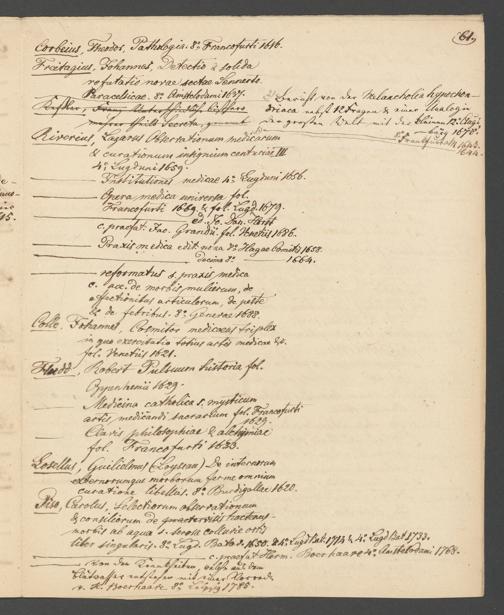 61.
Corbeius, Theodor, Pathologia. 8° Francofurti 1616.
Freitagius, Johannes, Detectio & solida
refutatio novae sectae Sennerto
Paracelsicae. 8° Amstelodami 1637.
von der Melancholia hypochon-
driaca nebst 12 Fragen & einer Analogie
der großen Welt mit der kleinen 12°
1678.
Francofurti 1643.
1644.
Riverius, Lazarus Observationum medicarum
& curationum insignium centuriae III
4° Lugduni 1659.
——— Institutiones medicae 4° Lugduni 1656.
——— Opera medica universa fol.
Francofurti 1669. & fol. Lugd. 1679.
ed. Jo. Dan. Horst
c. praefat. Jac. Grandii. fol. Venetiis 1686.
——— Praxis medica edit nona 8° Hagae Comitis 1658.
decima 8° ——— 1664.
——— reformatus s. praxis medica
c. acc. de morbis mulierum, de
affectionibus articulorum, de peste
& de febribus. 8° Genevae 1688.
Colle, Johannes, Cosmitor medicaeus triplex
in quo exercitatio totius artis medicae &c.
fol. Venetiis 1621.
Fludd, Robert Pulsuum historia fol.
Oppenhemii 1629.
——— Medicina catholica s. mysticum
artis medicandi sacrarium fol. Francofurti
1629.
——— Clavis philosophiae & alchymiae
fol. Francofurti 1633.
Losellus, Guilielmus (Loyseau) De internorum
externorumque morborum ferme omnium
curatione libellus. 8° Burdigallae 1620.
Piso, Carolus, Selectiorum observationum
& consiliorum de praetervisis hactenus
morbis ab aqua s. serosa colluvie ortis
liber singularis. 8° Lugd. Batav. 1650. & 4° Lugd. Bat. 1714 & 4° Lugd. Bat 1733.
c. praefat. Herm. Boerhaave 4° Amstelodami 1768.
——— Von den Krankheiten, welche aus dem
Blutwasser entstehen mit einer Vorrede
v. H. Boerhaave 8° Leipzig 1785.